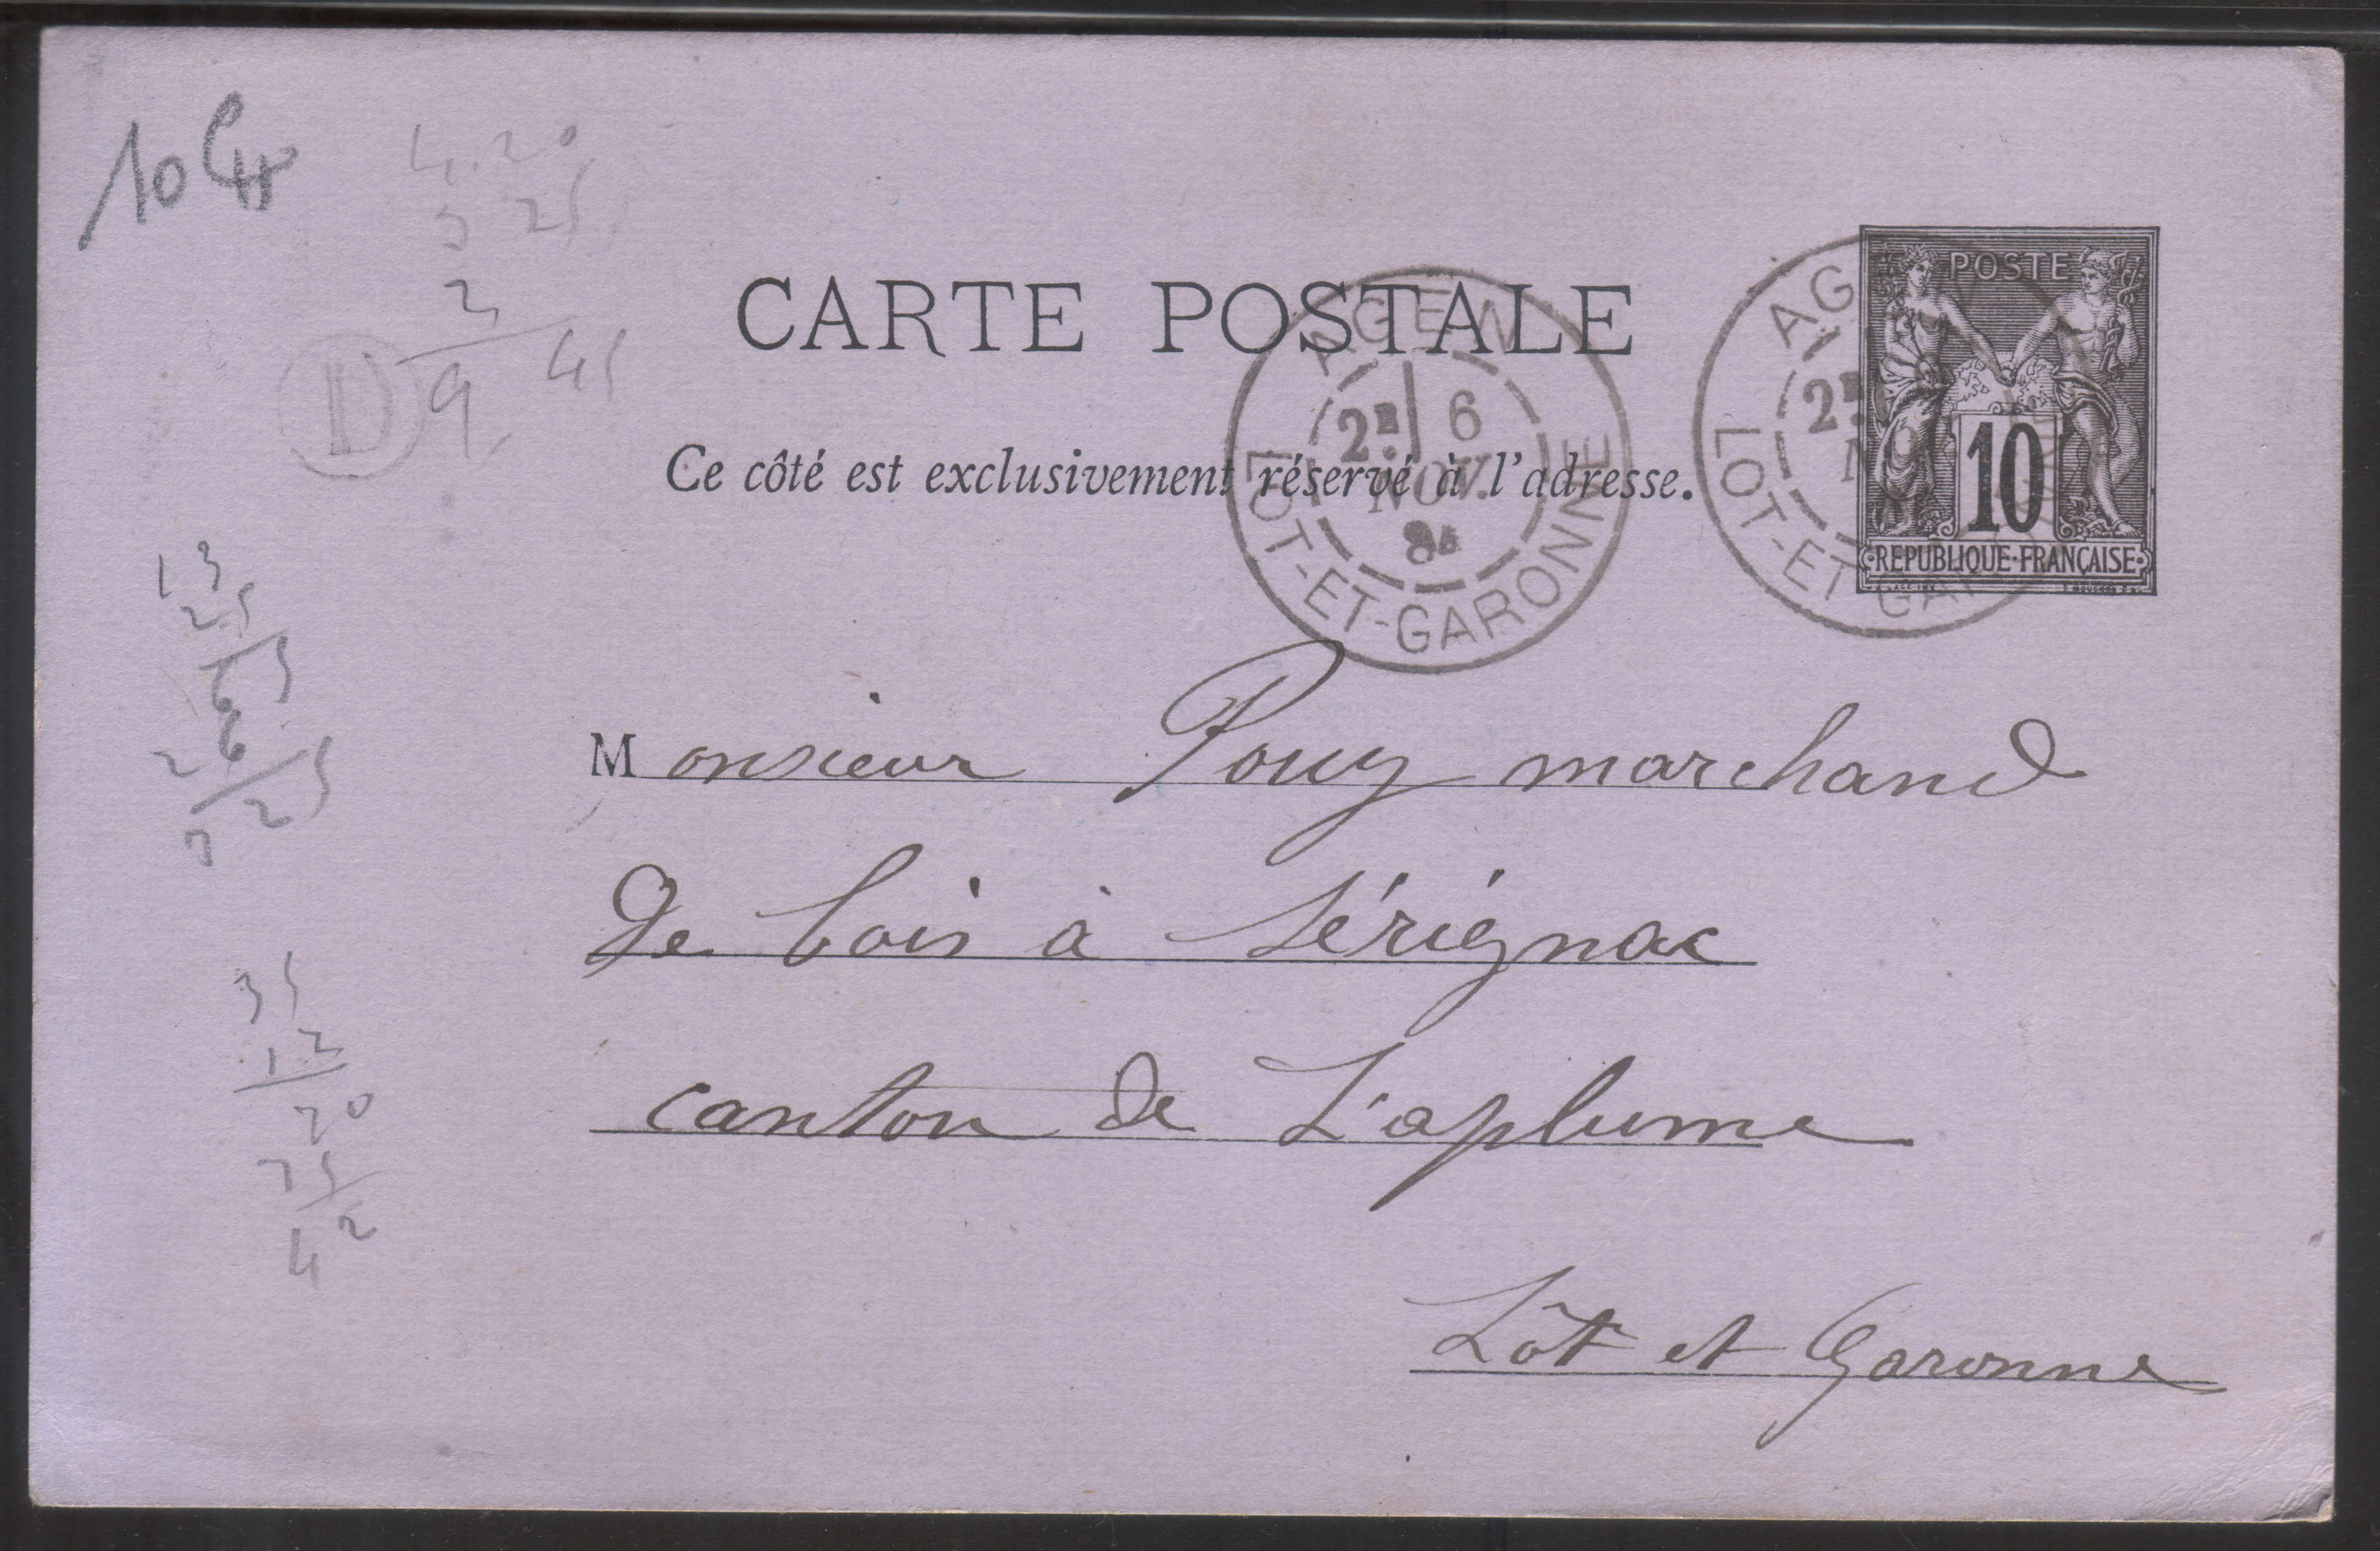 10
4.20
3 25
2
9 45
D
CARTE POSTALE
Ce côté est exclusivement réservé à l'adresse.
AGEN
2E 6
NOV.
84
LOT-ET-GARONNE
AG
2E
LOT-ET-GA
POSTE
10
REPUBLIQUE FRANÇAISE
13
25
65
6
2
7 25
35
12
70
75
42
Monsieur Pouy marchand
de bois à Sérignac
canton de L'aplume
Lot et Garonne